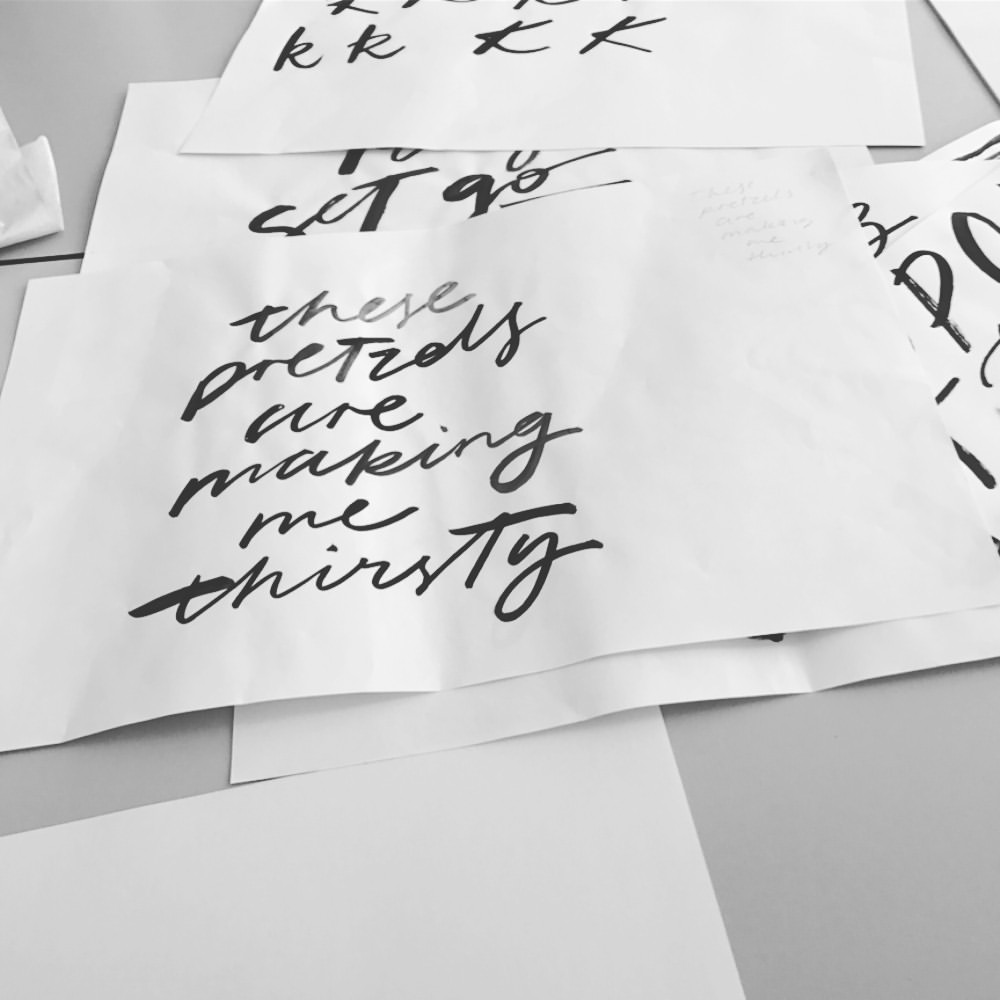 k k k k
set go
these
pretzels
are
making
me
thirsty
these
pretzels
are
making
me
thirsty
PO